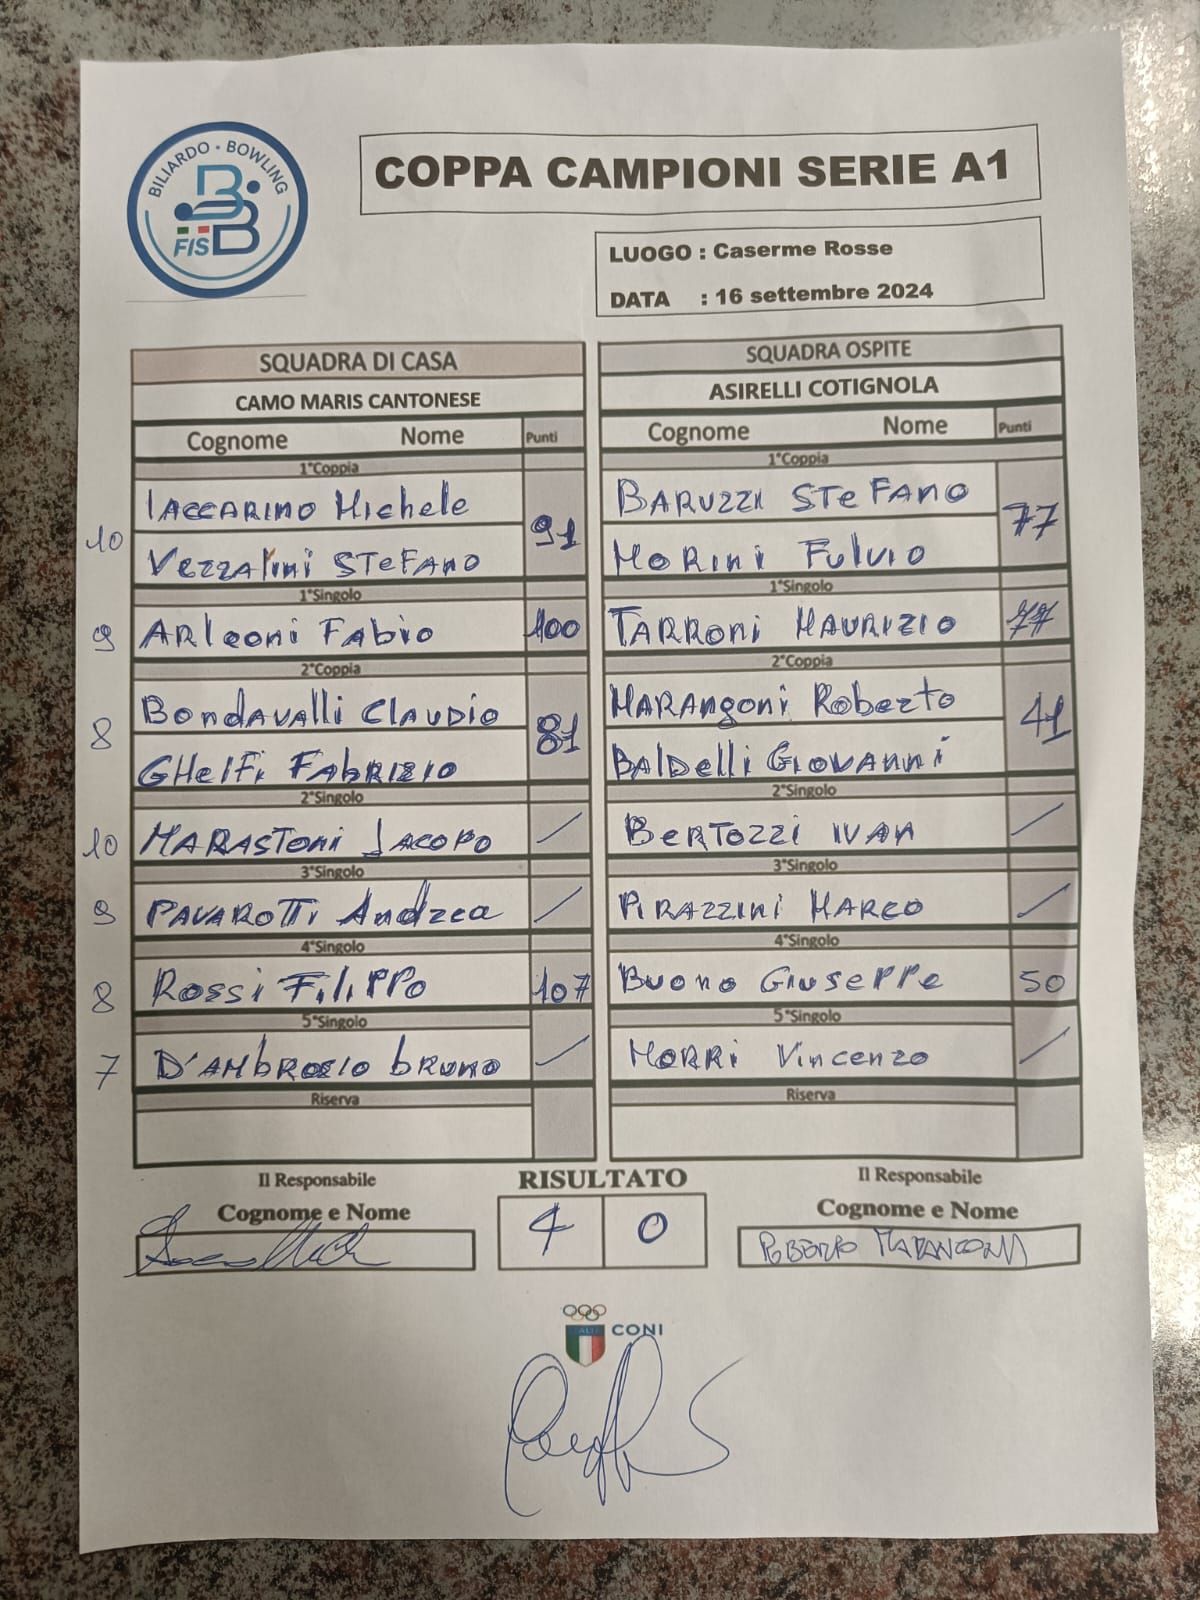 BILIARDO • BOWLING
FISBB
COPPA CAMPIONI SERIE A1
LUOGO : Caserme Rosse
DATA : 16 settembre 2024
SQUADRA DI CASA
CAMO MARIS CANTONESE
Cognome Nome Punti
1°Coppia
IACCARINO Michele
10 91
Vezzalini STeFANO
1°Singolo
9 ARleoni Fabio 100
2°Coppia
Bondavalli Claudio
8 81
GHelFi FabRIZIO
2°Singolo
10 MARASToni JACOPO /
3°Singolo
9 PAVAROTTi Andrea /
4°Singolo
8 Rossi FiliPPo 107
5°Singolo
7 D'AMbROSIO bRUNO /
Riserva
SQUADRA OSPITE
ASIRELLI COTIGNOLA
Cognome Nome Punti
1°Coppia
BARUZZI STeFANO
77
MORini Fulvio
1°Singolo
TARRONi MAURIZIO 77
2°Coppia
MARAngoni Roberto
41
BAlDelli GIOVAnni
2°Singolo
BeRTOZZI IVAN /
3°Singolo
PIRAZZINI MARCO /
4°Singolo
Buono GIUSePPe 50
5°Singolo
MORRi Vincenzo /
Riserva
Il Responsabile RISULTATO Il Responsabile
Cognome e Nome 4 0 Cognome e Nome
ROBERTO MARANGONI
ITALIA CONI